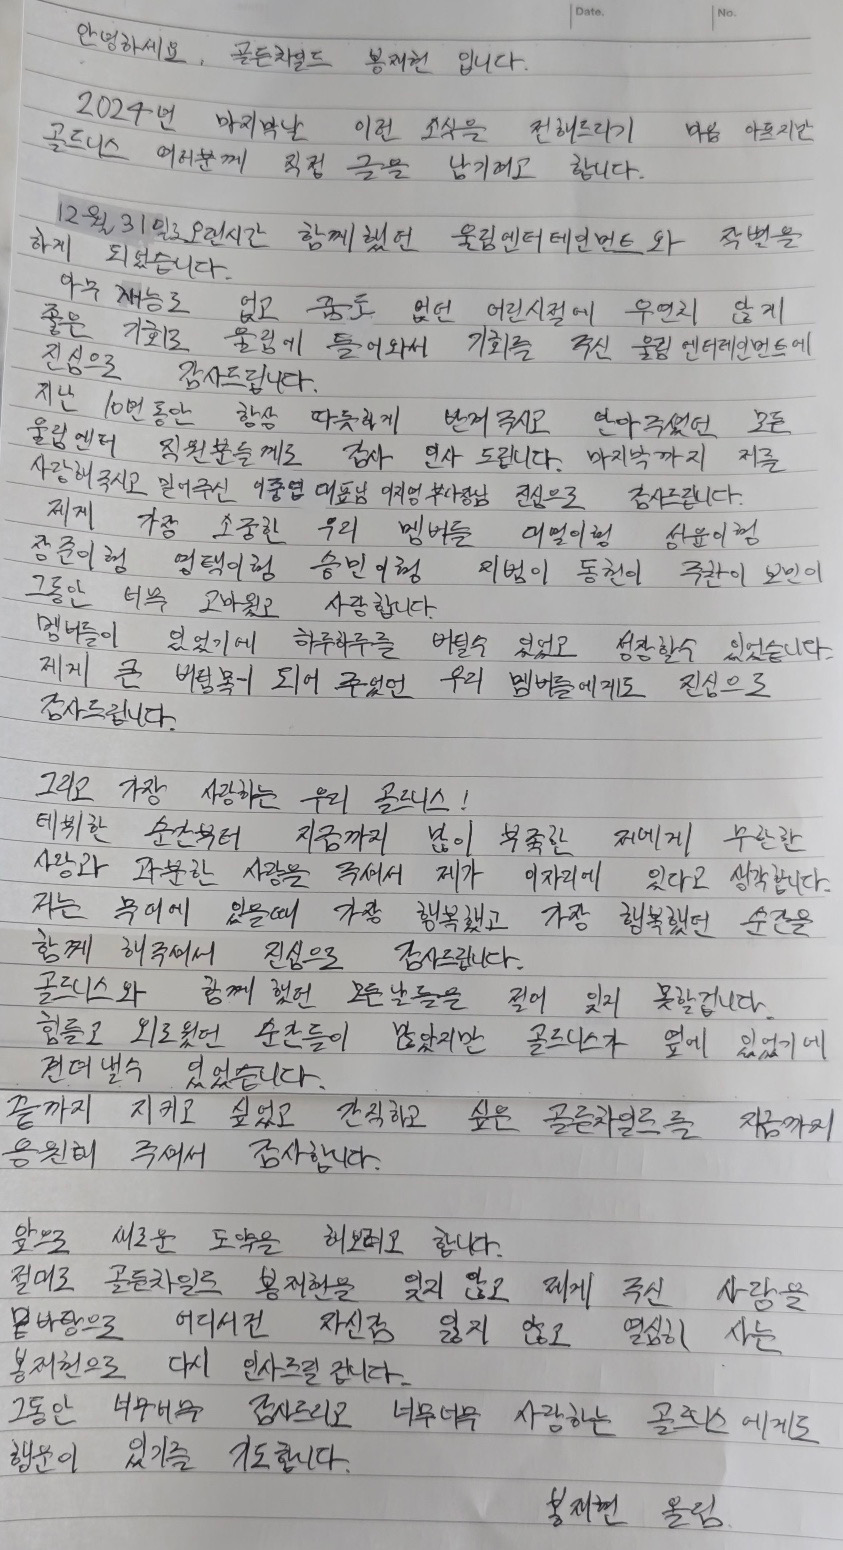 Date. No.
안녕하세요, 골든차일드 봉재현 입니다.
2024년 마지막날 이런 소식을 전해드리기 마음 아프지만
골드니스 여러분께 직접 글을 남기려고 합니다.
12월 31일로 오랜시간 함께했던 울림엔터테인먼트와 작별을
하게 되었습니다.
아무 재능도 없고 꿈도 없던 어린시절에 우연치 않게
좋은 기회로 울림에 들어와서 기회를 주신 울림엔터테인먼트에
진심으로 감사드립니다.
지난 10년동안 항상 따뜻하게 반겨주시고 안아주셨던 모든
울림엔터 직원분들께도 감사 인사 드립니다. 마지막까지 저를
사랑해주시고 믿어주신 이중엽 대표님 이지영 부사장님 진심으로 감사드립니다.
제게 가장 소중한 우리 멤버들 대열이형 성윤이형
장준이형 영택이형 승민이형 지범이 동현이 주찬이 보민이
그동안 너무 고마웠고 사랑합니다.
멤버들이 있었기에 하루하루를 버틸수 있었고 성장할수 있었습니다.
제게 큰 버팀목이 되어 주었던 우리 멤버들에게도 진심으로
감사드립니다.
그리고 가장 사랑하는 우리 골드니스!
데뷔한 순간부터 지금까지 많이 부족한 저에게 무한한
사랑과 과분한 사랑을 주셔서 제가 이자리에 있다고 생각합니다.
저는 무대에 있을때 가장 행복했고 가장 행복했던 순간을
함께 해주셔서 진심으로 감사드립니다.
골드니스와 함께 했던 모든날들을 절대 잊지 못할겁니다.
힘들고 외로웠던 순간들이 많았지만 골드니스가 옆에 있었기에
견뎌낼수 있었습니다.
끝까지 지키고 싶었고 간직하고 싶은 골든차일드를 지금까지
응원해 주셔서 감사합니다.
앞으로 새로운 도약을 해보려고 합니다.
절대로 골든차일드 봉재현을 잊지 않고 제게 주신 사랑을
밑바탕으로 어디서든 자신감 잃지 않고 열심히 사는
봉재현으로 다시 인사드릴 겁니다.
그동안 너무너무 감사드리고 너무너무 사랑하는 골드니스에게도
행운이 있기를 기도합니다.
봉재현 올림.